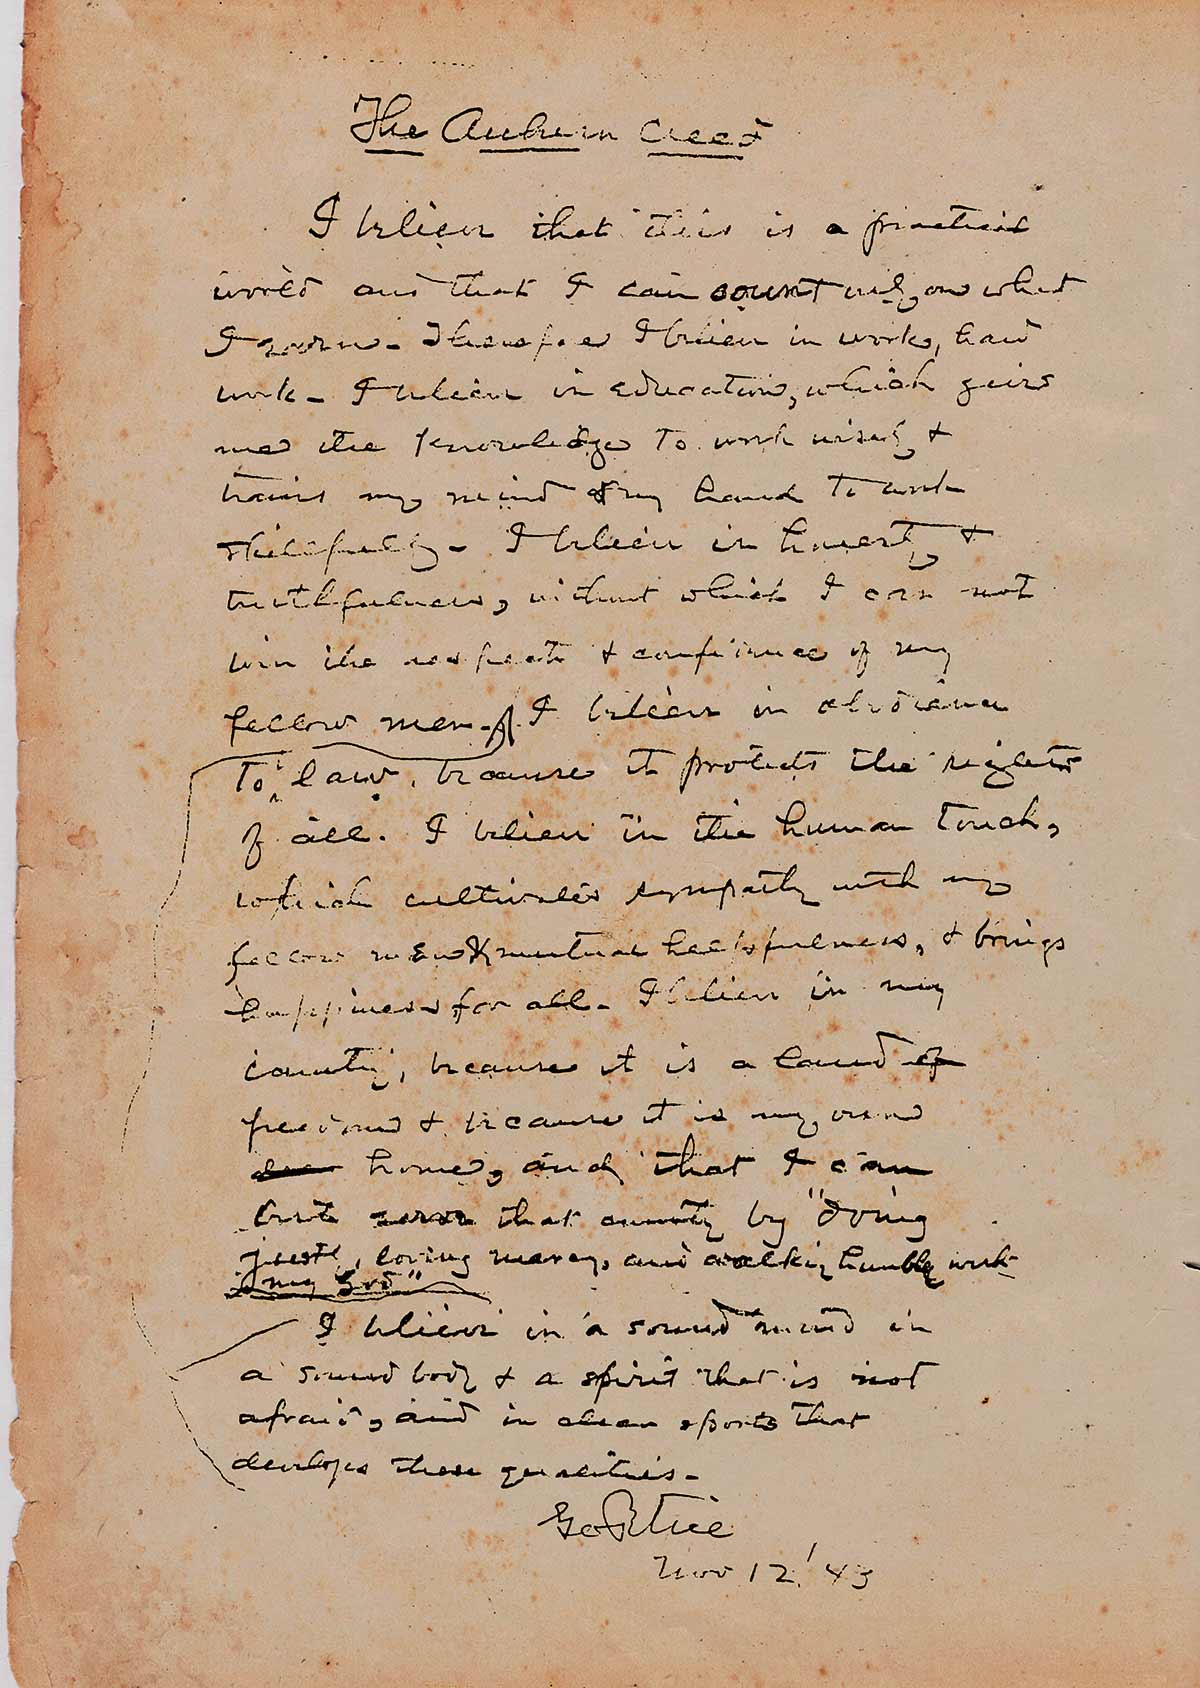 The Auburn Creed
I believe that this is a practical
world and that I can count only on what
I earn. Therefore I believe in work, hard
work. I believe in education, which gives
me the knowledge to work wisely &
trains my mind & my hand to work
skillfully. I believe in honesty &
truthfulness, without which I can not
win the respect & confidence of my
fellow men. I believe in obedience
to law, because it protects the rights
of all. I believe in the human touch,
which cultivates sympathy with my
fellow men & mutual helpfulness, & brings
happiness for all. I believe in my
country, because it is a land of
freedom & because it is my own
home, and that I can
best serve that country by "doing
justly, loving mercy, and walking humbly with
my God"
I believe in a sound mind in
a sound body & a spirit that is not
afraid, and in clean sports that
develops these qualities.
Geo Petrie
Nov 12, '43